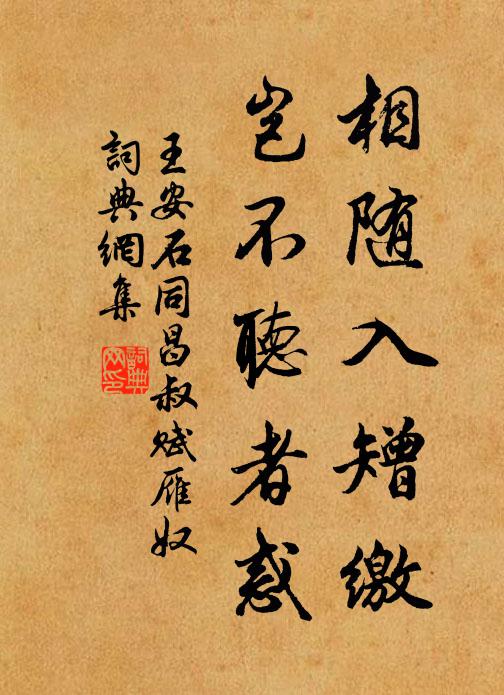 相随入矰缴
岂不聽者惑
王安石同昌叔赋雁奴
詞典網集
詞典
网印